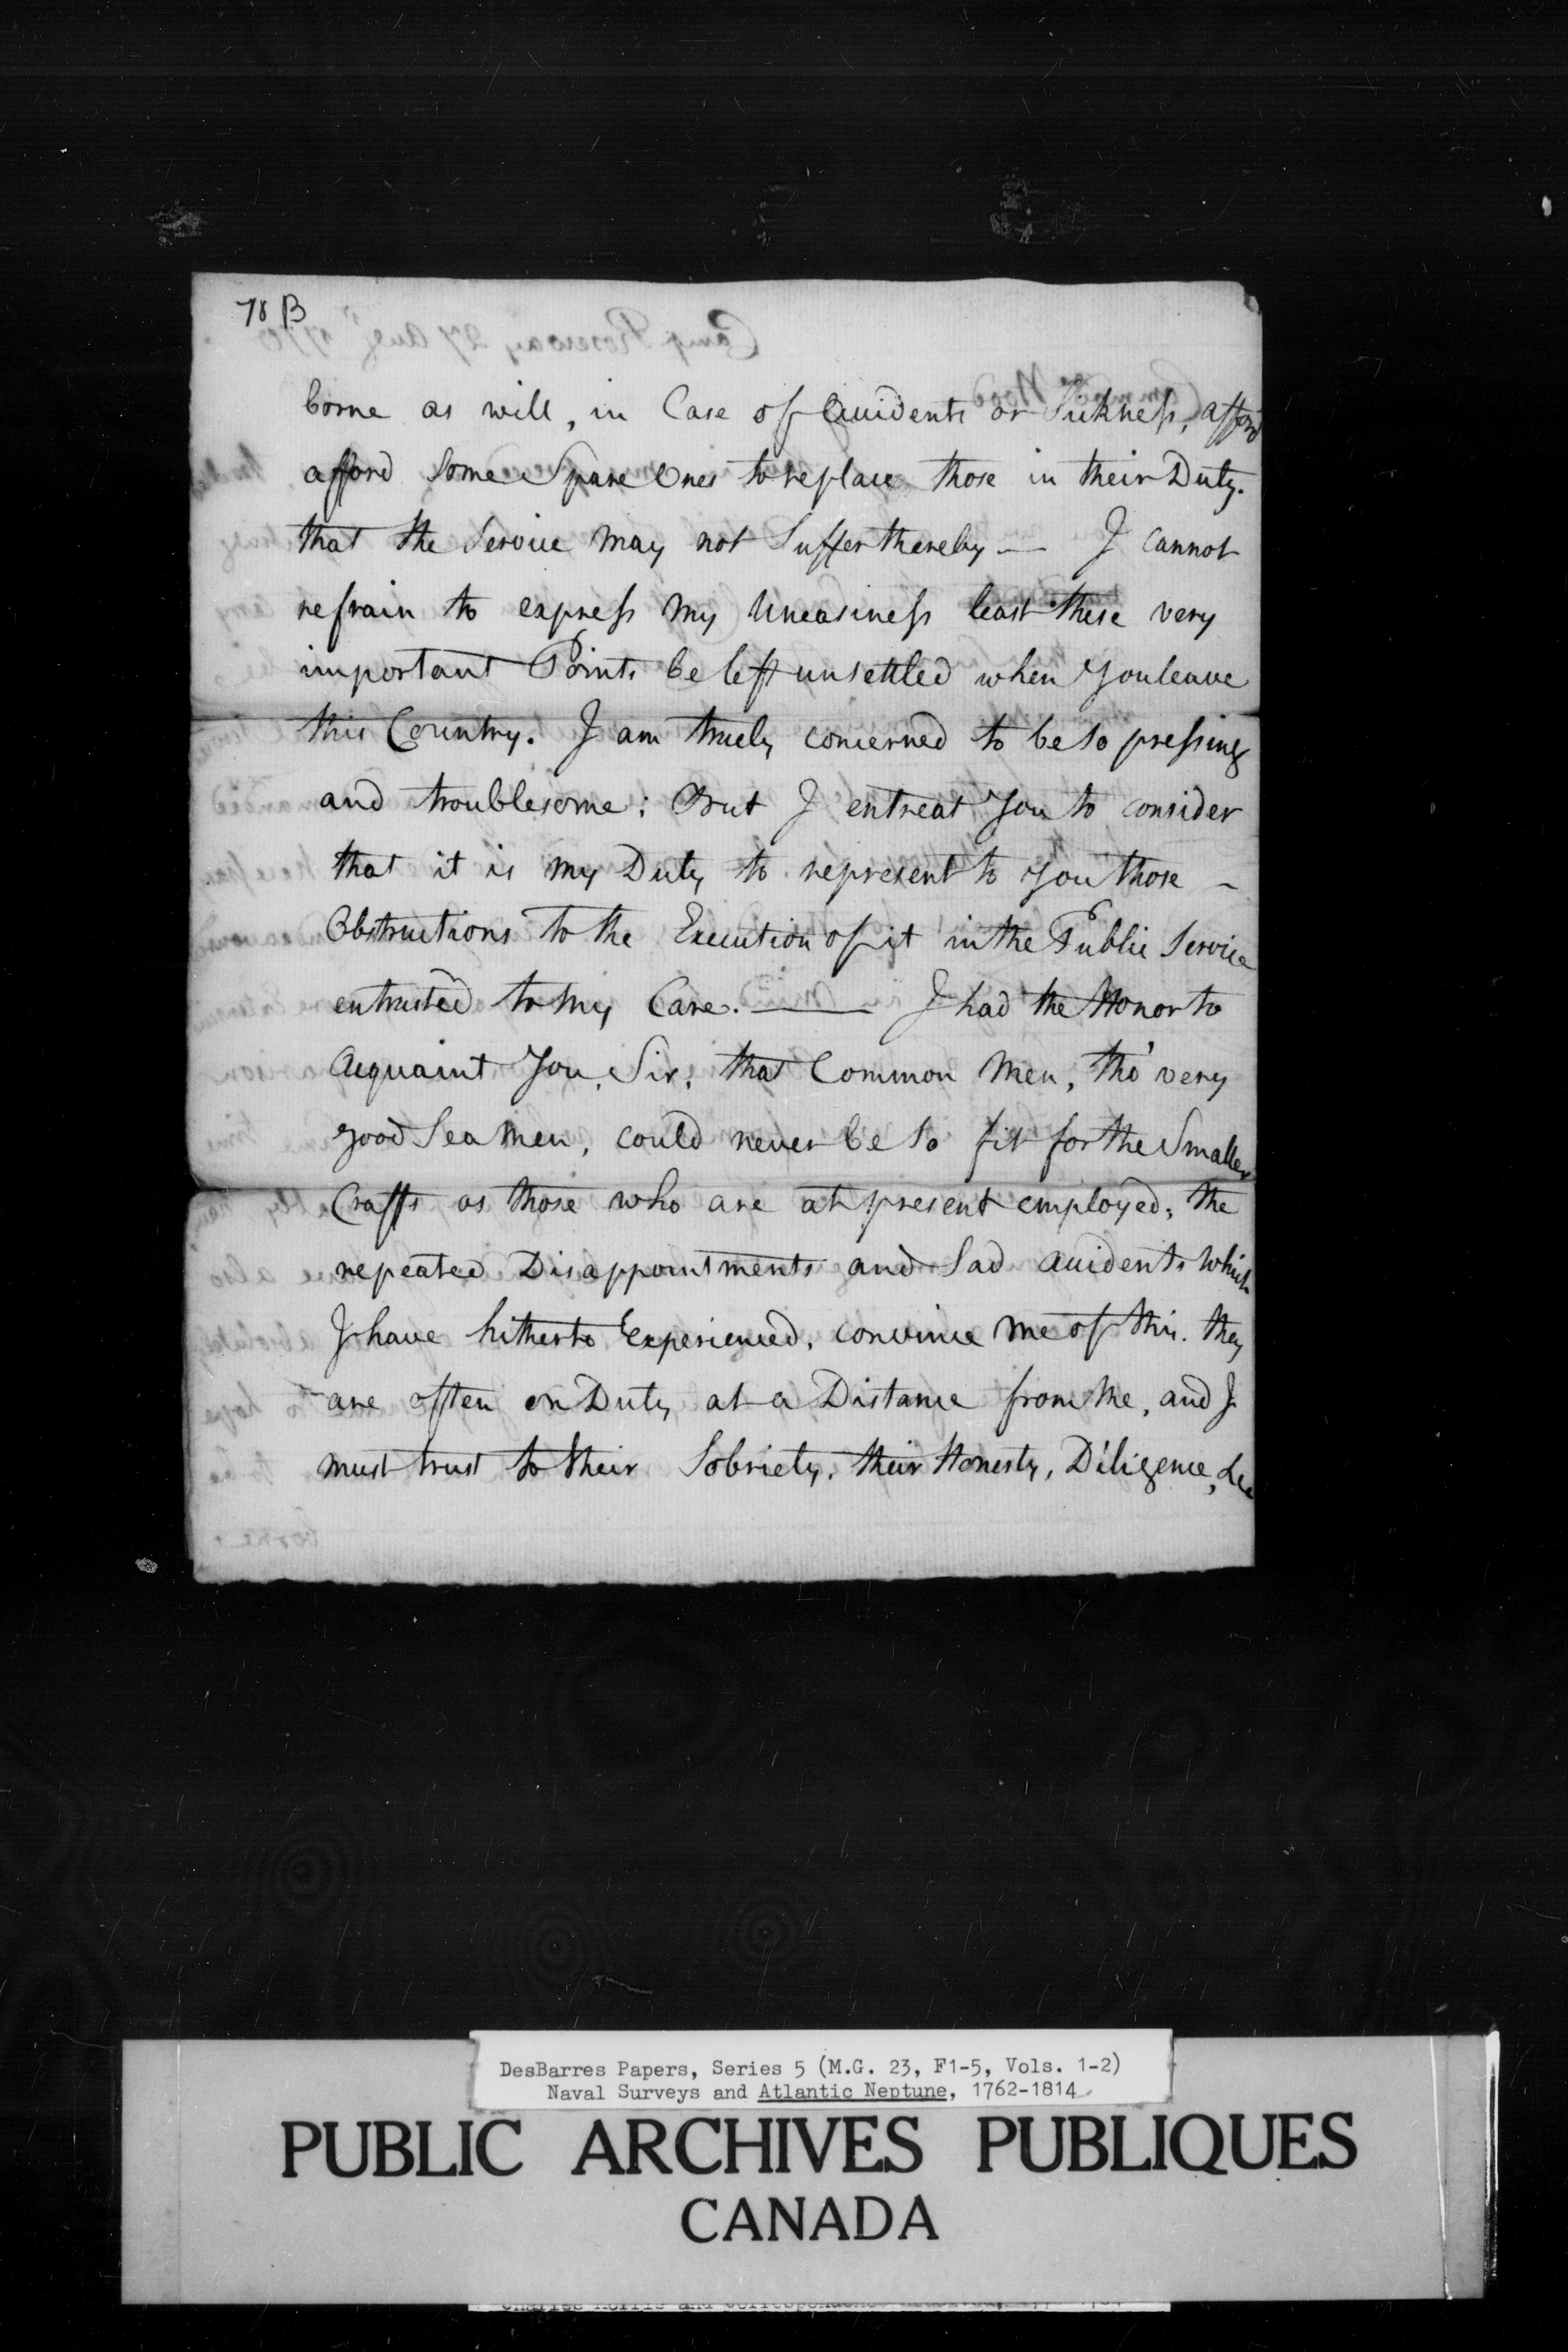 78 B
borne as will, in Case of Accidents or Sickness, afford
afford some Spare Ones to replace those in their Duty.
that the Service may not Suffer thereby — I cannot
refrain to express my Uneasiness least these very
important Points be left unsettled when You leave
this Country. I am truely concerned to be so pressing
and troublesome; But I entreat You to consider
that it is my Duty to represent to You those –
Obstructions to the Execution of it in the Public Service
entrusted to my Care. — I had the Honor to
Acquaint You, Sir, that Common Men, tho' very
good Seamen, could never be so fit for the Smaller
Crafts as those who are at present employed; the
repeated Disappointments and Sad Accidents which
I have hitherto Experienced, convince me of this. they
are often on Duty at a Distance from Me, and I
must trust to their Sobriety, their Honesty, Diligence, &c
DesBarres Papers, Series 5 (M.G. 23, F1-5, Vols. 1-2)
Naval Surveys and Atlantic Neptune, 1762-1814
PUBLIC ARCHIVES PUBLIQUES
CANADA